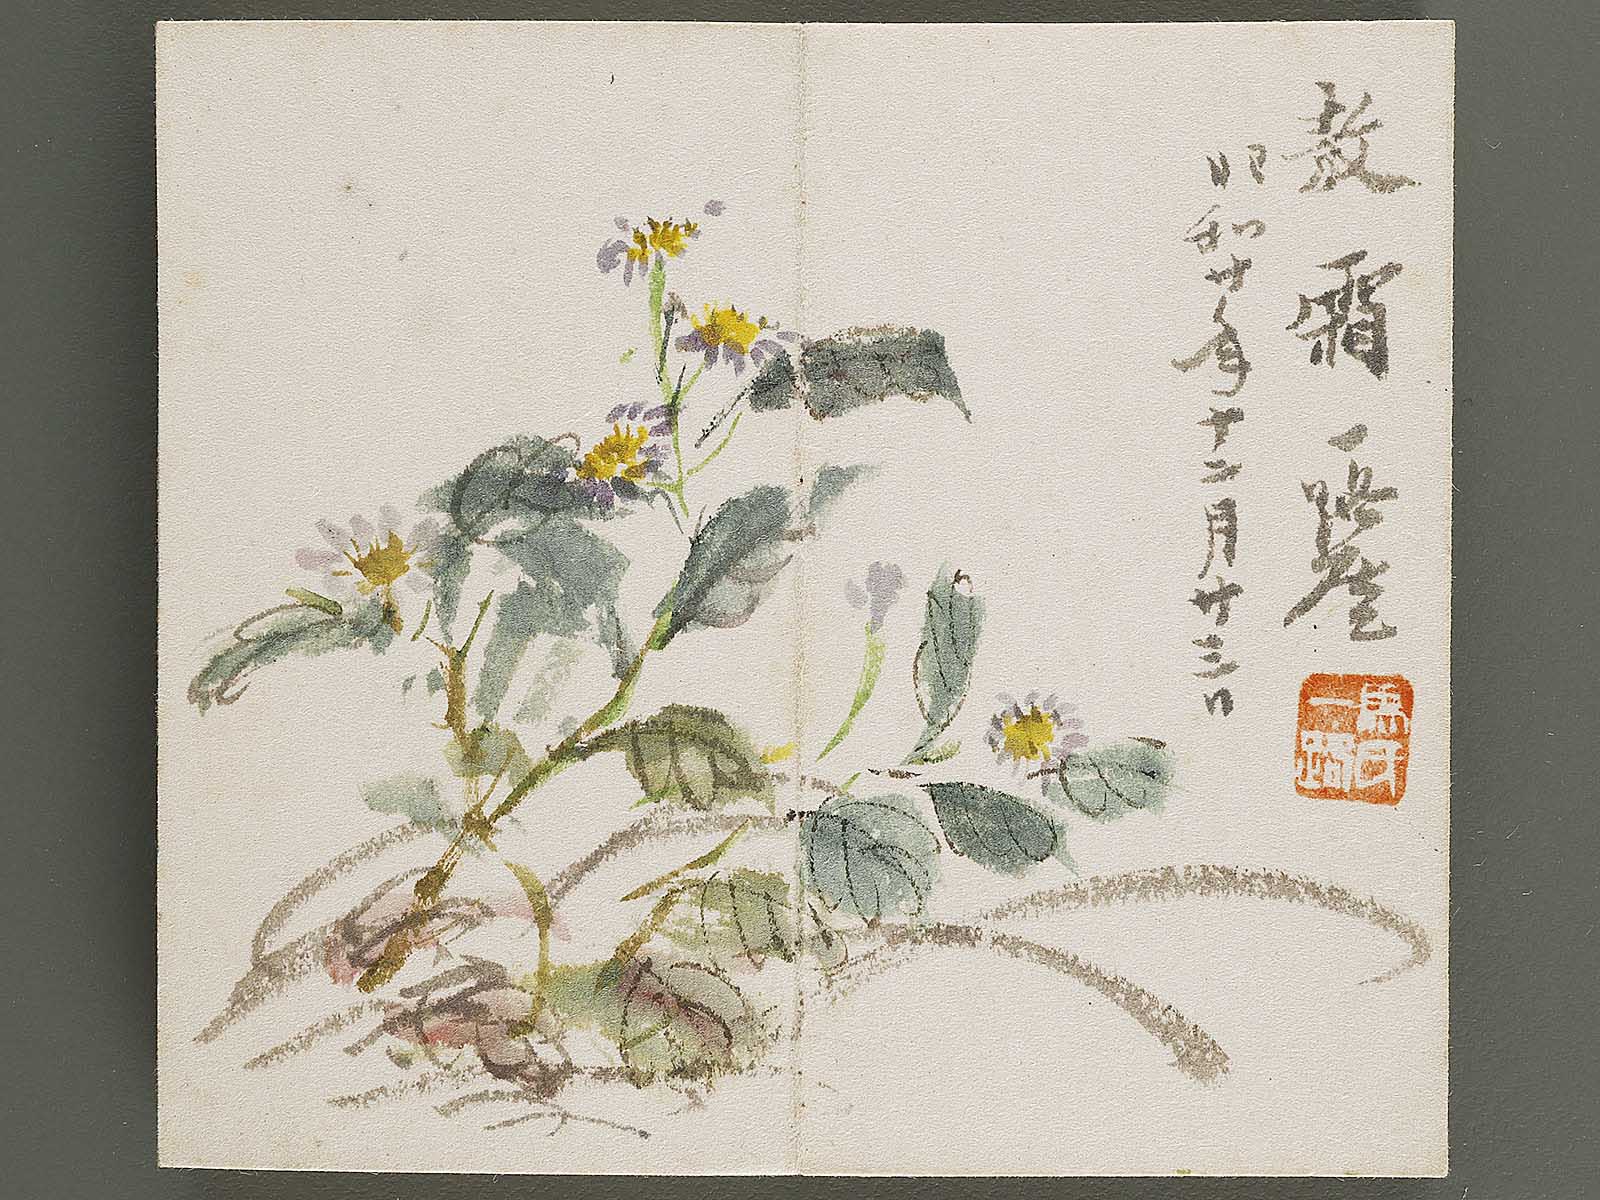 敖霜 一路
昭和廿年十二月廿三日
一路